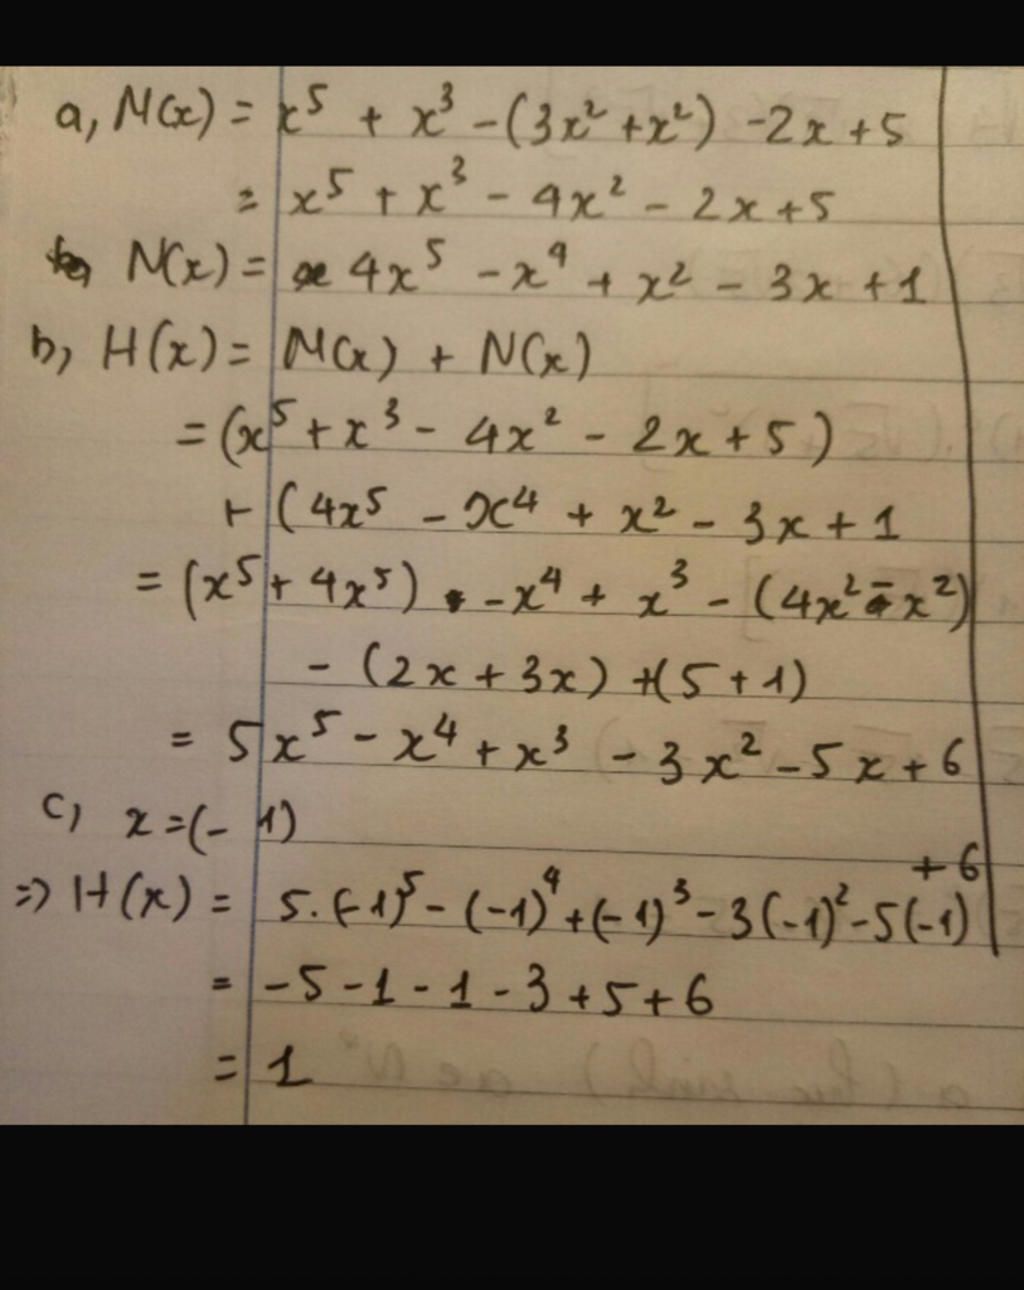 a, M(x) = x⁵ + x³ - (3x² + x²) - 2x + 5
= x⁵ + x³ - 4x² - 2x + 5
N(x) = 4x⁵ - x⁴ + x² - 3x + 1
b, H(x) = M(x) + N(x)
= (x⁵ + x³ - 4x² - 2x + 5)
+ (4x⁵ - x⁴ + x² - 3x + 1
= (x⁵ + 4x⁵) - x⁴ + x³ - (4x² - x²)
- (2x + 3x) + (5 + 1)
= 5x⁵ - x⁴ + x³ - 3x² - 5x + 6
c, x = (-1)
=> H(x) = 5.(-1)⁵ - (-1)⁴ + (-1)³ - 3(-1)² - 5(-1) + 6
= -5 - 1 - 1 - 3 + 5 + 6
= 1